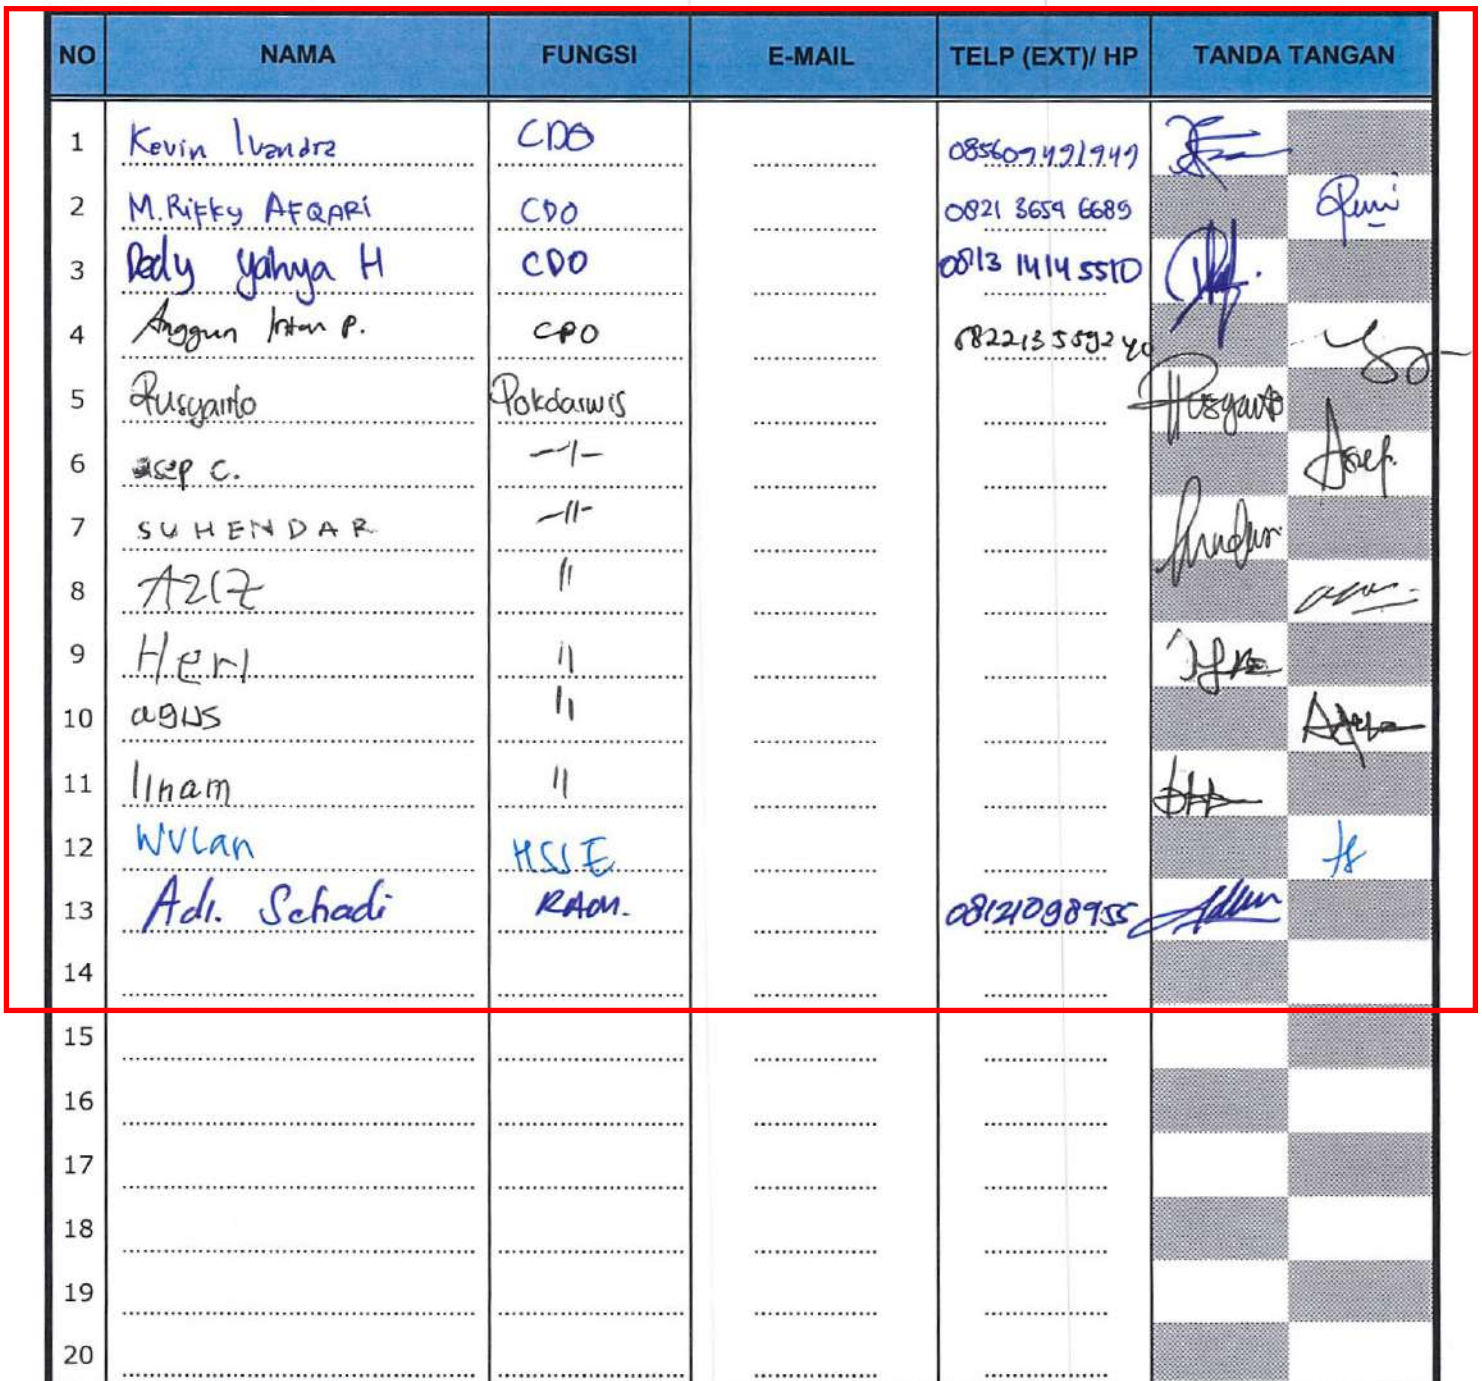 NO NAMA FUNGSI E-MAIL TELP (EXT)/ HP TANDA TANGAN
1 Kevin Ivandra CDO 085609491949
2 M. Rifky AFQARi CDO 0821 3659 6689
3 Dedy Yahya H CDO 0813 1414 5510
4 Anggun Intan P. CDO 082213559240
5 Rusyanto Pokdarwis Rusyanto
6 asep C. -"- Asep.
7 SUHENDAR -"-
8 AZIZ "
9 Heri "
10 agus "
11 Ilham "
12 WULan HSSE
13 Adi. Sehadi RAM. 08121098955
14
15
16
17
18
19
20